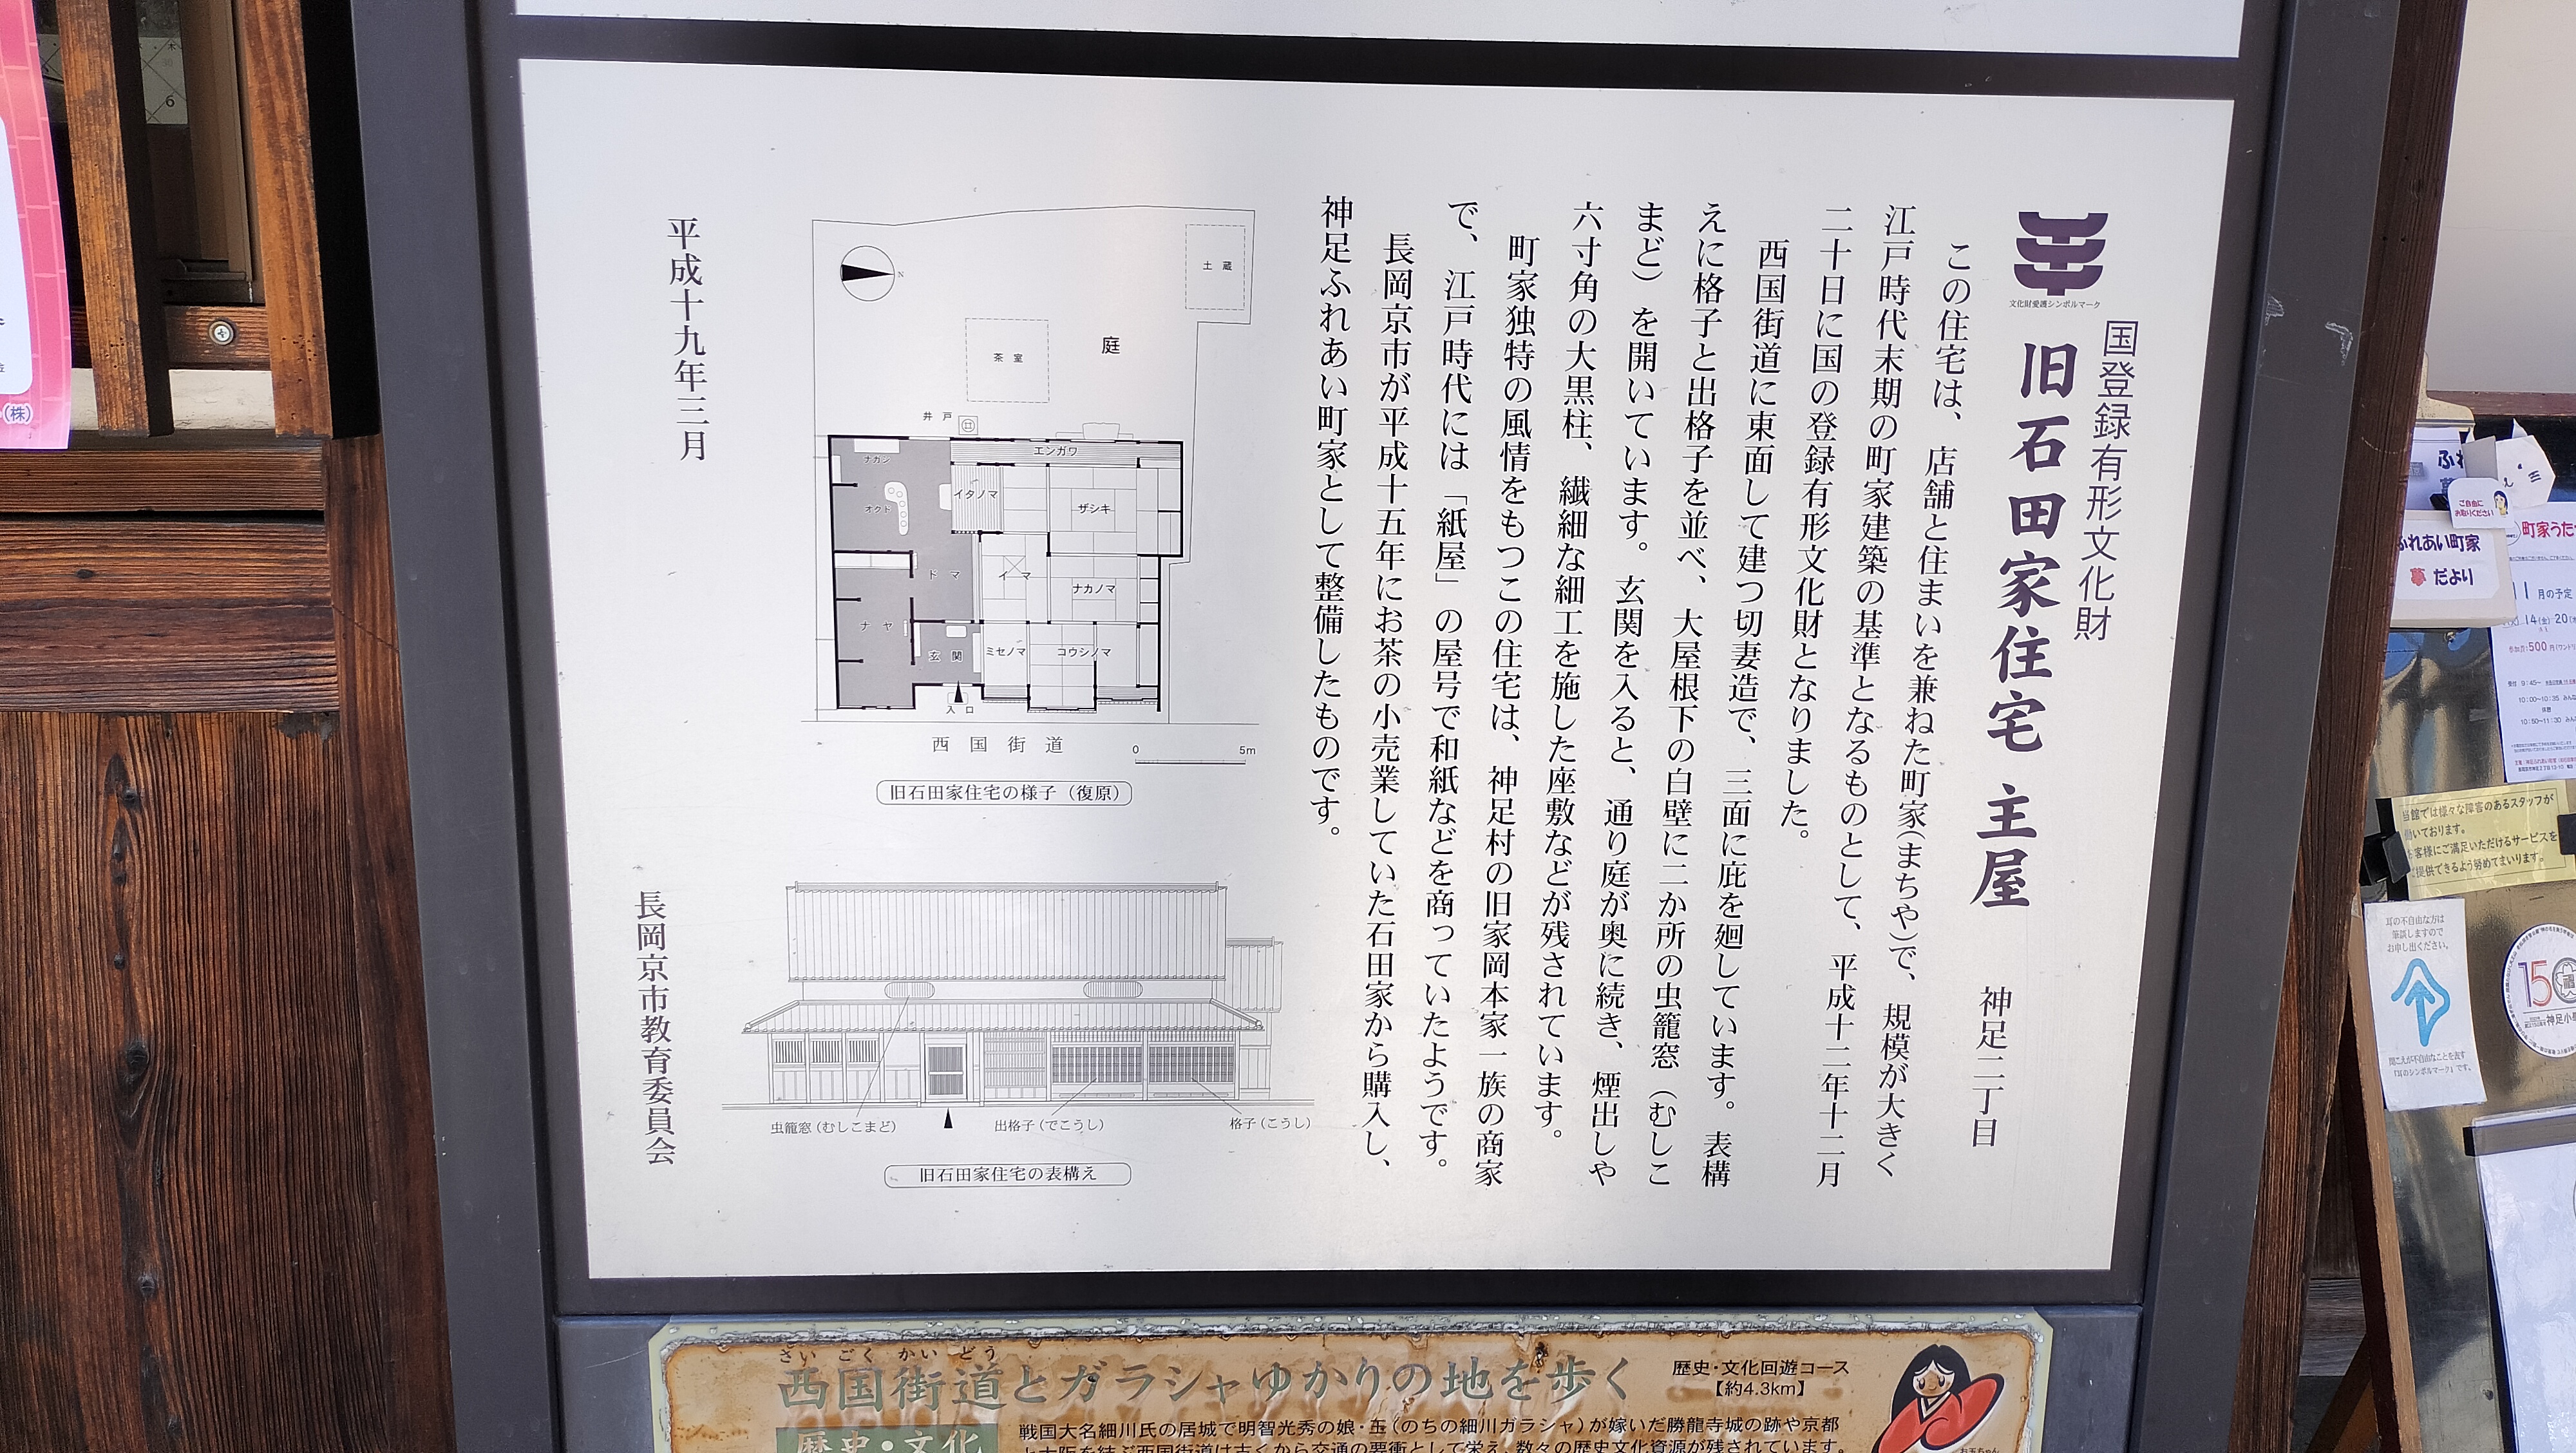 文化財愛護シンボルマーク
国登録有形文化財
旧石田家住宅 主屋
神足二丁目
この住宅は、店舗と住まいを兼ねた町家(まちや)で、規模が大きく
江戸時代末期の町家建築の基準となるものとして、平成十二年十二月
二十日に国の登録有形文化財となりました。
西国街道に東面して建つ切妻造で、三面に庇を廻しています。表構
えに格子と出格子を並べ、大屋根下の白壁に二か所の虫籠窓(むしこ
まど)を開いています。玄関を入ると、通り庭が奥に続き、煙出しや
六寸角の大黒柱、繊細な細工を施した座敷などが残されています。
町家独特の風情をもつこの住宅は、神足村の旧家岡本家一族の商家
で、江戸時代には「紙屋」の屋号で和紙などを商っていたようです。
長岡京市が平成十五年にお茶の小売業していた石田家から購入し、
神足ふれあい町家として整備したものです。
土蔵
N
庭
茶室
井戸
エンガワ
ナガシ
イタノマ
ザシキ
オクド
ドマ
イマ
ナカノマ
ナヤ
玄関
ミセノマ
コウシノマ
入口
西国街道
0 5m
旧石田家住宅の様子(復原)
虫籠窓(むしこまど)
出格子(でこうし)
格子(こうし)
旧石田家住宅の表構え
平成十九年三月
長岡京市教育委員会
さいごくかいどう
西国街道とガラシャゆかりの地を歩く
歴史・文化回遊コース
【約4.3km】
歴史・文化
戦国大名細川氏の居城で明智光秀の娘・玉(のちの細川ガラシャ)が嫁いだ勝龍寺城の跡や京都
と大阪を結ぶ西国街道は古くから交通の要衝として栄え、数々の歴史文化資源が残されています。
お玉ちゃん
(株)
6
ご自由に
お取りください
ふれあい町家
だより
町家うた
月の予定
500円
当館では様々な障害のあるスタッフが
働いております。
お客様にご満足いただけるサービスを
提供できるよう努めてまいります。
耳の不自由な方は
筆談しますので
お申し出ください。
聞こえが不自由なことを表す
「耳のシンボルマーク」です。
150
神足小学